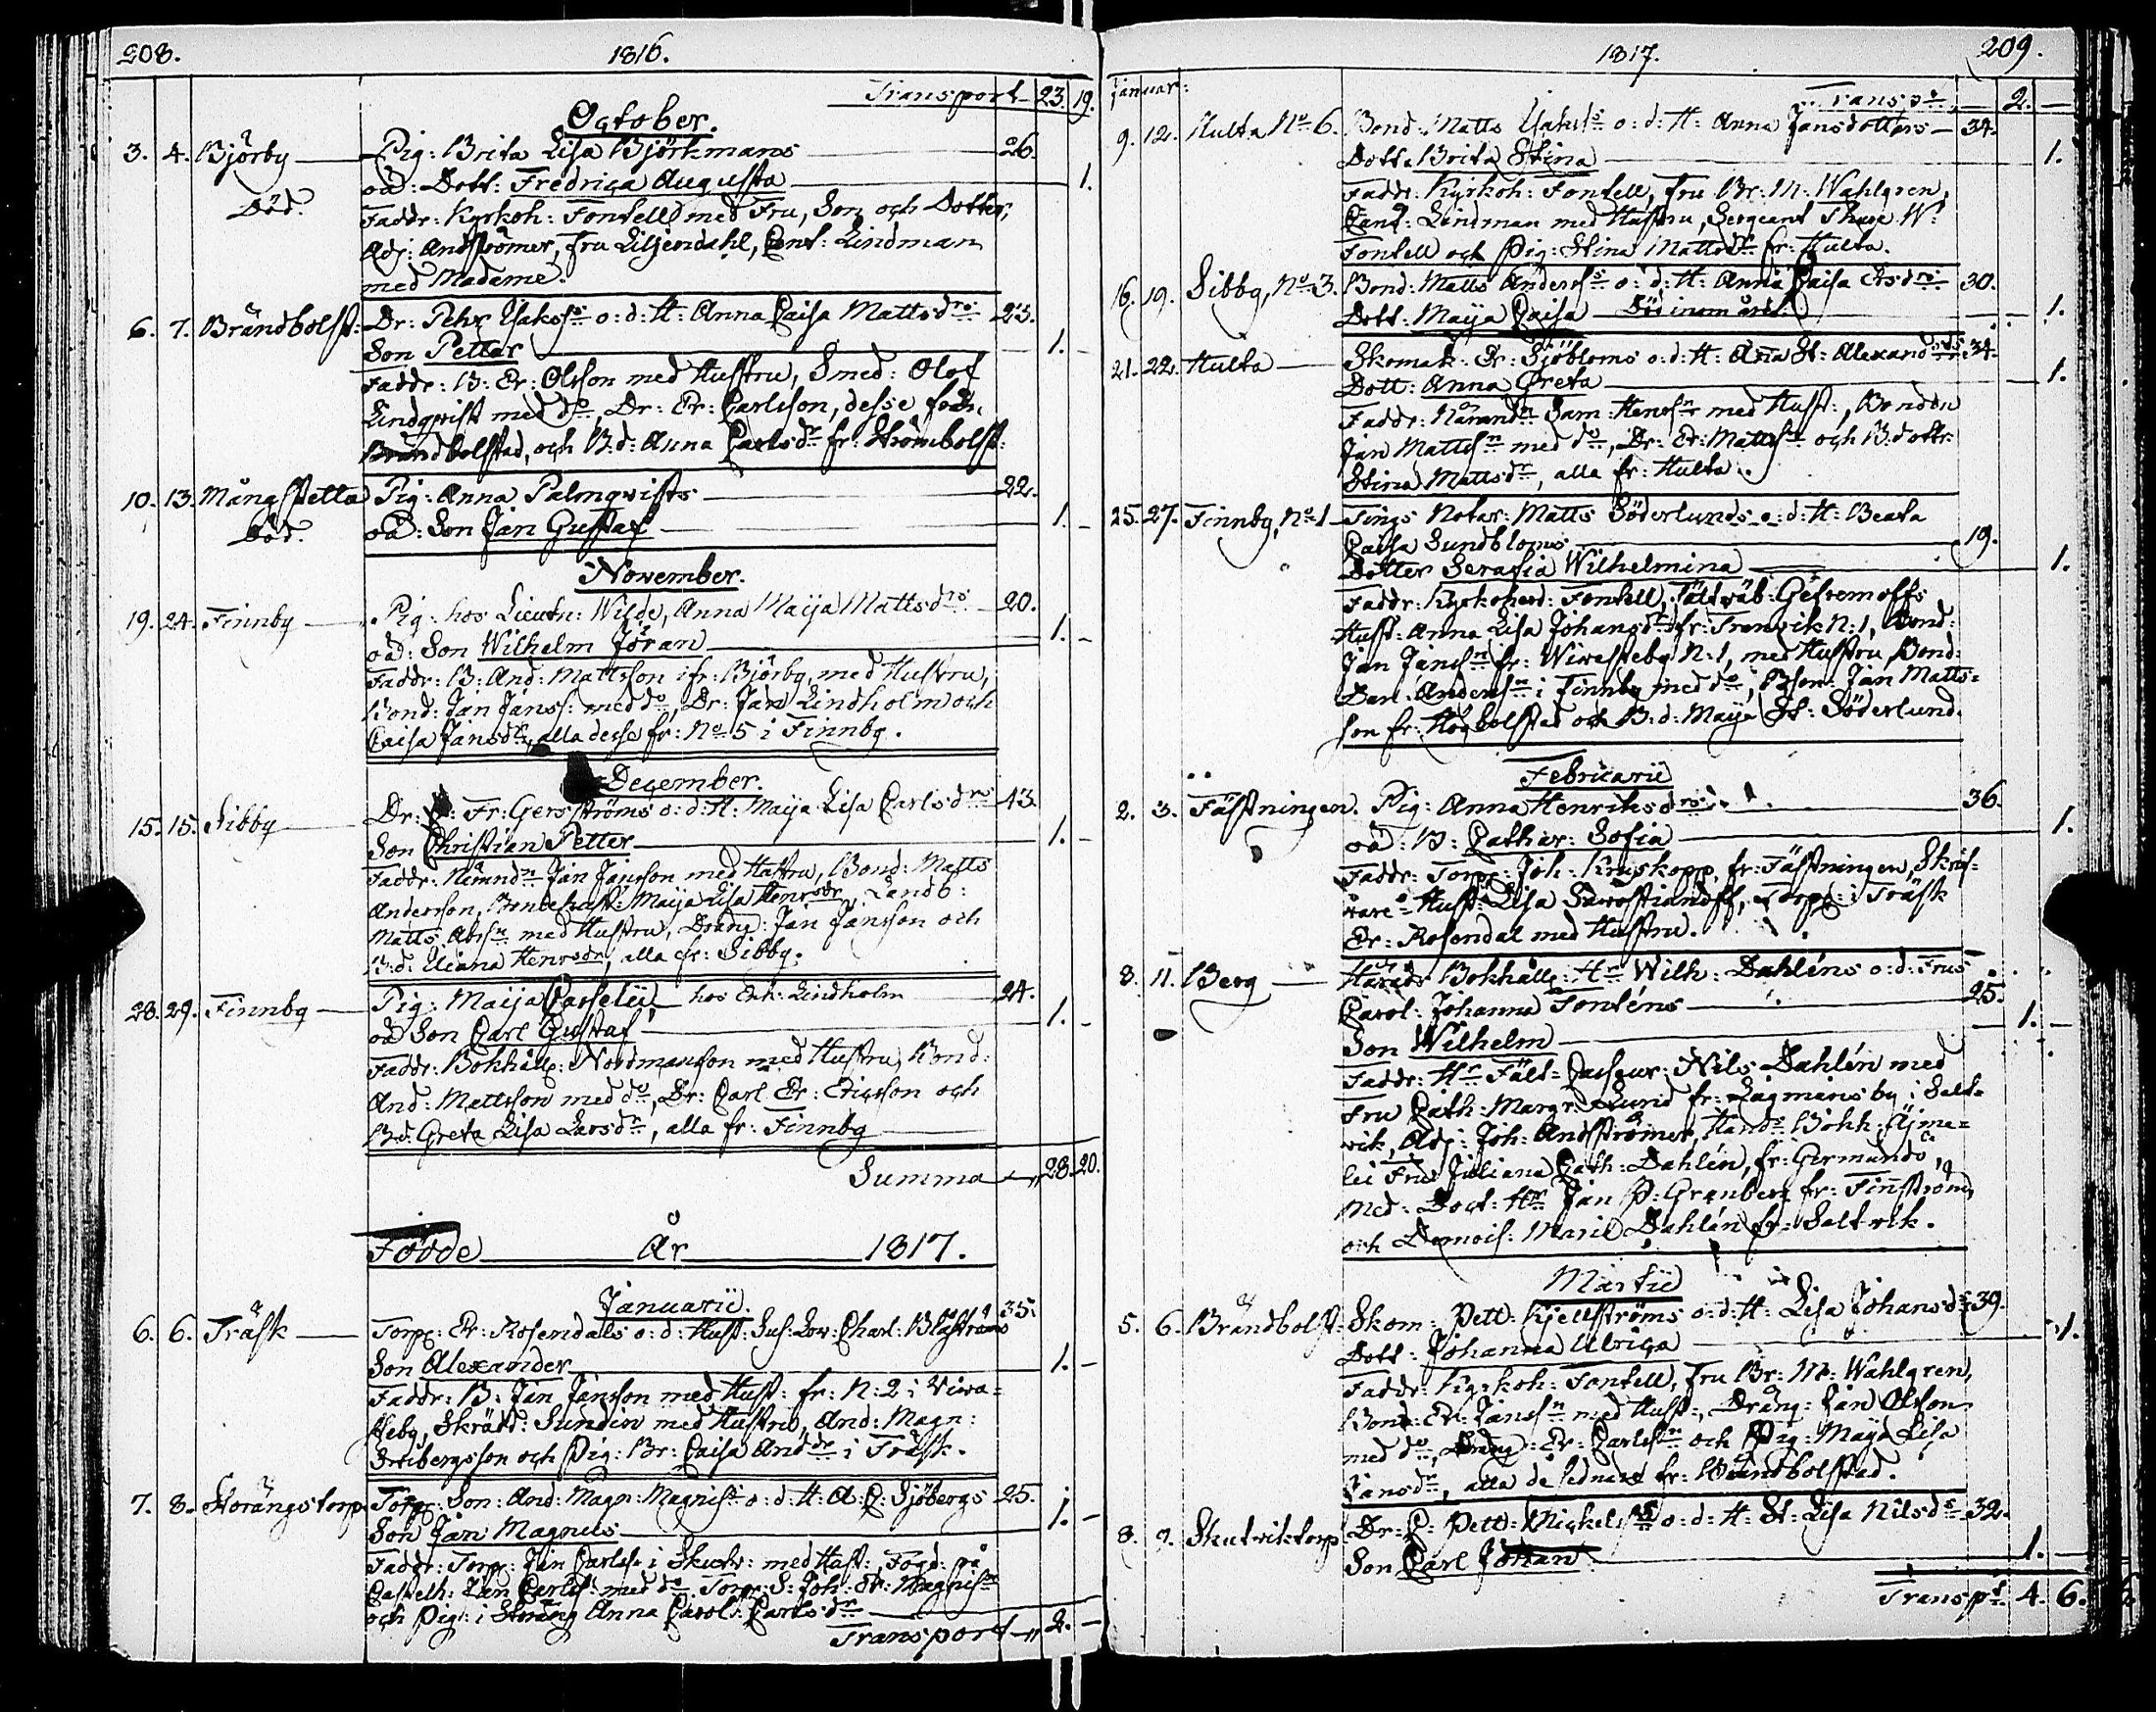 208. 1816.
Transport 23. 19.
October.
3. 4. Björby Pig: Brita Lisa Björkmans 26.
Död. oä: Dott: Fredrica Augusta 1.
Faddr: Kyrkoh: Fontell med Fru, Son och Dotter,
Adj: Andströmer, Fru Liljendahl, Cant: Lindman
med Madame.
6. 7. Brändbolst: Dr: Pehr Isakss:s o: d: H: Anna Caisa Mattsdrs 23.
Son Petter 1. -
Faddr: B: Er: Olsson med Hustru, Smed: Olof
Lindqvist med do, Dr: Er: Carlsson, desse från
Brändbolstad, och B:d: Anna Carlsdr fr: Strömbolst:
10. 13. Mångstekta Pig: Anna Palmqvists 22.
Död. oä: Son Jan Gustaf 1. -
November.
19. 24. Finnby Pig: hos Lieutn: Wilde, Anna Maija Mattsdrs 20.
oä: Son Wilhelm Jöran 1. -
Faddr: B: And: Mattsson ifr: Björby, med Hustru,
Bond: Jan Janss: med do, Dr: Jan Lindholm och
Caisa Jansdr, alla desse fr: No 5 i Finnby.
December.
15. 15. Sibby Dr: Fr: Gersströms o: d: H: Maija Lisa Carlsdrs 43.
Son Christian Petter 1. -
Faddr: Nämndn Jan Jansson med Hustru, Bond: Matts
Andersson, Bondehust: Maija Lisa Henrsdr, Landb:
Matts Abrsn med Hustru, Dräng: Jan Jansson och
B:d: Eleana Henrsdr, alla fr: Sibby.
28. 29. Finnby Pig: Maija Casselii hos Enk: Lindholm 24.
oä Son Carl Gustaf 1. -
Faddr: Bokhåll: Nordmansson med Hustru, Bond:
And: Mattsson med do, Dr: Carl Er: Ericsson och
B:d: Greta Lisa Larsdr, alla fr: Finnby
Summa 28. 20.
Födde År 1817.
Januarii.
6. 6. Träsk Torp: Er: Rosendals o: d: Hust: Sus: Lov: Charl: Blåströms 35.
Son Alexander 1. -
Faddr: B: Jan Jansson med Hust: fr: N: 2 i Viva=
steby, Skrädd: Sundin med Hustru, And: Magn:
Ersbergsson och Pig: Br: Caisa Anddr i Träsk.
7. 8. Storängstorp Torp: Son: And: Magn: Magniss o: d: H: A: C: Sjöbergs 25.
Son Jan Magnus 1. -
Faddr: Torp: Jan Carlss: i Skutv: med Hust:, Fogd: på
Castelh: Jan Carlss: med do Torp: S: Joh: Er: Magnisn
och Pig: i Storäng Anna Carol: Carlsdr
Transport 2. -
1817. 209.
Januar: Transpt 2. -
9. 12. Hulta No 6. Bond: Matts Isakss:s o: d: H: Anna Jansdotters 34.
Dott: Brita Stina 1.
Faddr: Kyrkoh: Fontell, Fru Br: M: Wahlgren,
Cant: Lindman med Hustru, Sergeant Thure W:
Fontell och Pig: Stina Mattsdr fr: Hulta.
16. 19. Sibby, No 3. Bond: Matts Anderss:s o: d: H: Anna Caisa Ersdrs 30.
Dott: Maija Caisa Död inom året. 1.
21. 22. Hulta Skomak: Er: Sjöbloms o: d: H: Anna St: Alexandsds 34.
Dott: Anna Greta 1.
Faddr: Närandn Sam: Henrsn med Hust:, Bonden
Jan Mattsn med do, Dr: Er: Mattsn och B:dottr:
Stina Mattsdr, alla fr: Hulta.
25. 27. Finnby, No 1 Tings Notar: Matts Söderlunds o: d: H: Beata
Caisa Sundbloms 19.
Dotter Serafia Wilhelmina 1.
Faddr: Kyrkoherd: Fontell, Fältväb: Gefremoffs
Hust: Anna Lisa Johansdr fr: Tranvik N: 1, Bond:
Jan Jansn fr: Wivasteby N: 1, med Hustru, Bond:
Dan: Andersn i Finnby med do, B:son: Jan Matts=
son fr: Högbolstad och B:d: Maija St: Söderlund.
Februarii
2. 3. Fästningen. Pig: Anna Henriksdrs 36.
oä: B: Cathar: Sofia 1.
Faddr: Torp: Joh: Kruskopp, fr: Fästningen, Skrif=
vare= Hust: Lisa Sarostiandff, Torp: i Träsk
Er: Rosendal med Hustru.
8. 11. Berg Härads Bokhåll: Hr Wilh: Dahléns o: d: Frus
Carol: Johanna Tonténs 25.
Son Wilhelm 1. -
Faddr: Hr Fält=Casseur: Nils Dahlén med
Fru Cath: Margr: Lund fr: Lagmansby i Salt=
vik, Adj: Joh: Andströmer, Hands Bokh: Äjme=
lei Fru Juliana Cath: Dahlén, fr: Germundö,
Med: Doct: Hr Jan P: Granberg fr: Finström
och Demois: Marie Dahlén fr: Saltvik.
Martii
5. 6. Brändbolst: Skom: Pett: Kjellströms o: d: H: Lisa Johansds 39.
Dott: Johanna Ulrica 1.
Faddr: Kyrkoh: Fontell, Fru Br: M: Wahlgren,
Bond: Er: Janssn med Hust:, Dräng: Jan Olsson
med do, Dräng: Er: Carlssn och Pig: Maija Lisa
Jansdr, alla de sednare fr: Brändbolstad.
8. 9. Skutviktorp Dr: C: Pett: Mickelsns o: d: H: St: Lisa Nilsds 32.
Son Carl Johan 1. -
Transpt 4. 6.